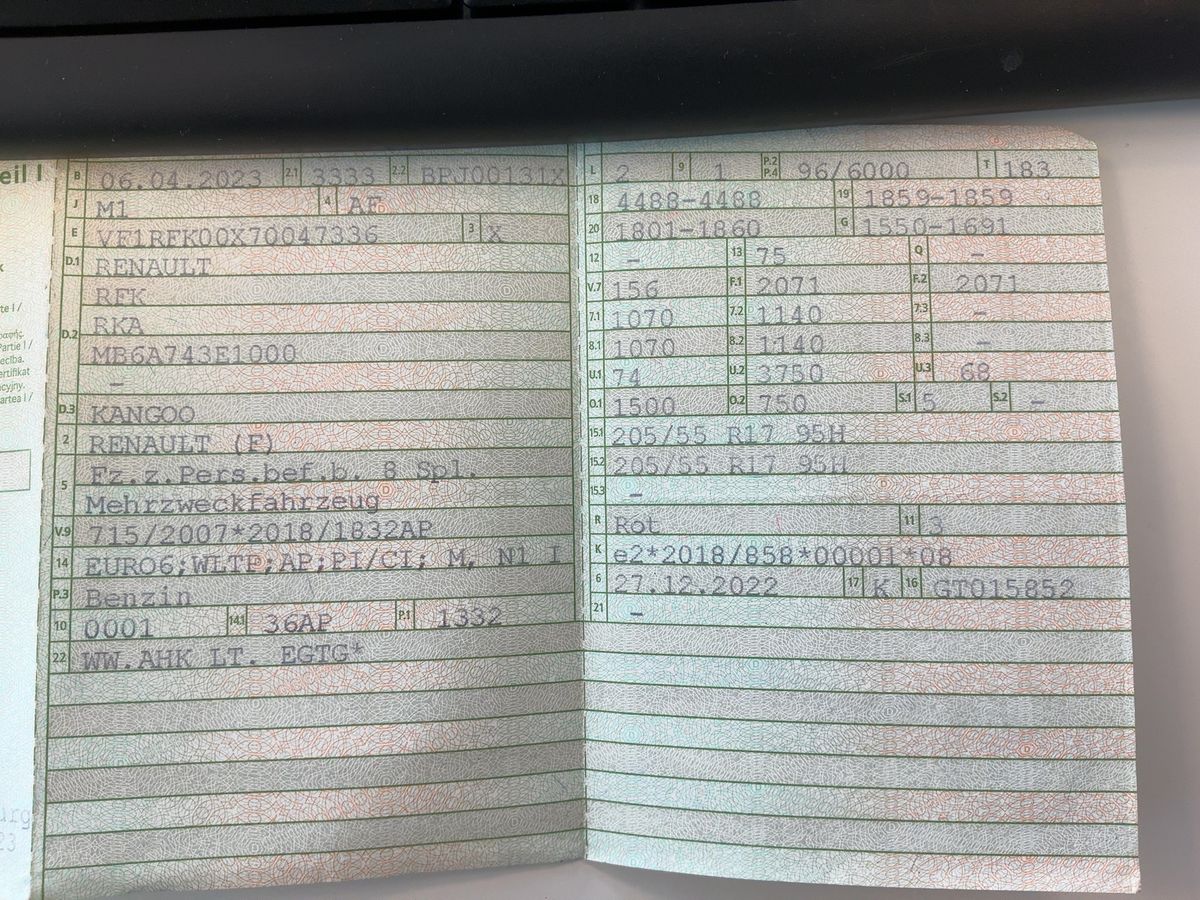 eil I
B 06.04.2023 2.1 3333 2.2 BPJ00131X
J M1 4 AF
E VF1RFK00X70047336 3 X
D.1 RENAULT
RFK
D.2 RKA
MB6A743E1000
–
D.3 KANGOO
2 RENAULT (F)
5 Fz.z.Pers.bef.b. 8 Spl.
Mehrzweckfahrzeug
V.9 715/2007*2018/1832AP
14 EURO6;WLTP;AP;PI/CI; M, N1 I
P.3 Benzin
10 0001 14.1 36AP P.1 1332
22 WW.AHK LT. EGTG*
L 2 9 1 P.2 P.4 96/6000 T 183
18 4488-4488 19 1859-1859
20 1801-1860 G 1550-1691
12 – 13 75 Q –
V.7 156 F.1 2071 F.2 2071
7.1 1070 7.2 1140 7.3 –
8.1 1070 8.2 1140 8.3 –
U.1 74 U.2 3750 U.3 68
O.1 1500 O.2 750 S.1 5 S.2 –
15.1 205/55 R17 95H
15.2 205/55 R17 95H
15.3 –
R Rot 11 3
K e2*2018/858*00001*08
6 27.12.2022 17 K 16 GT015852
21 –